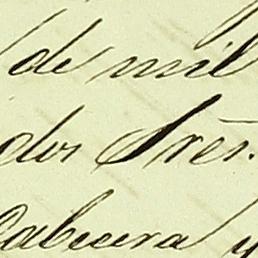 de mil
dos Sres.
Cabecera y